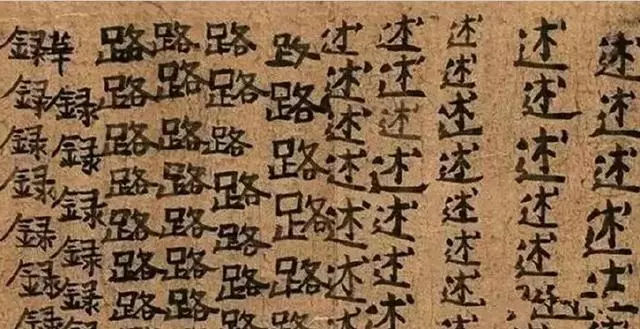 述述述述述
述述述述述
述述述述述述述
述述述述述述述
述述述述述述述
路路路路路
路路路路路路路
路路路路路路路路
路路路路路路路
華録録録録録
録録録録録録録